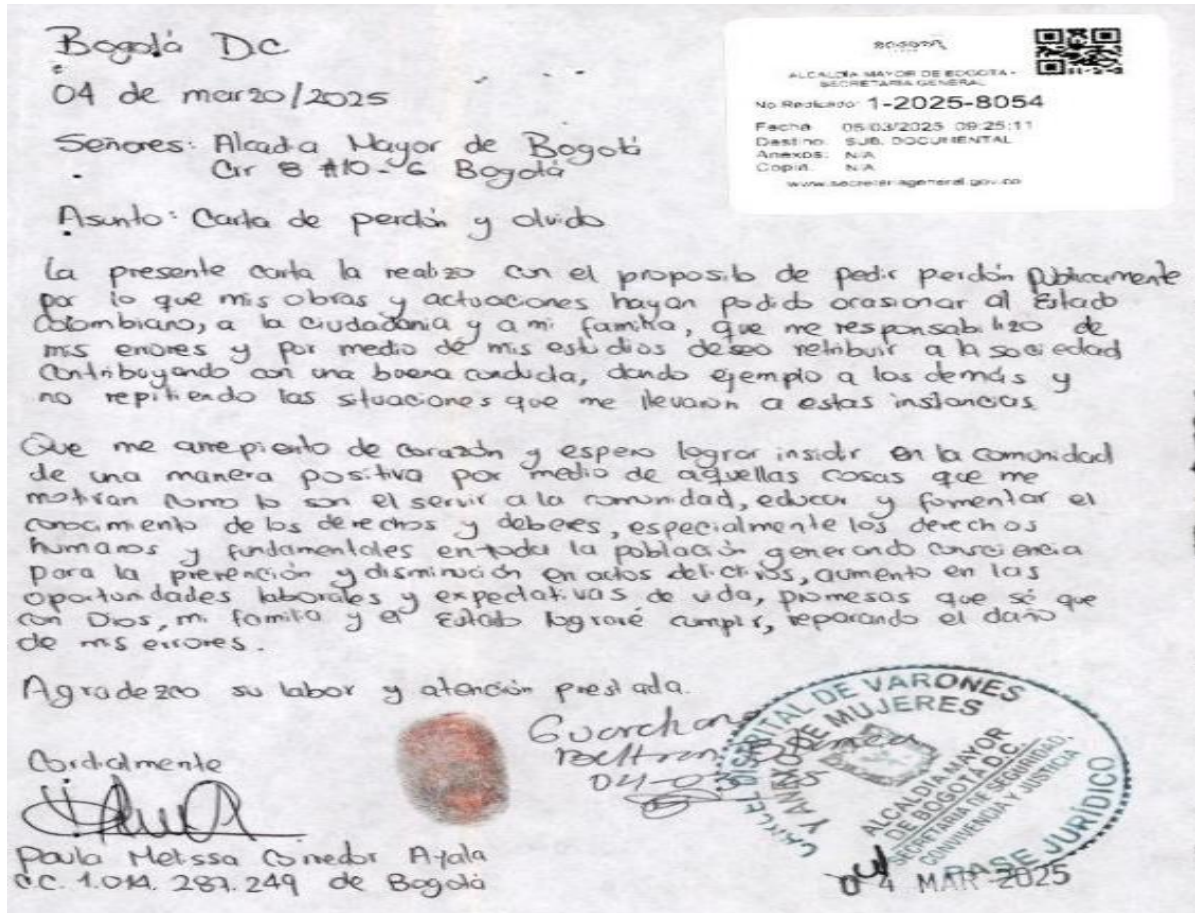 Bogotá D.C
04 de marzo/2025
Señores: Alcadia Mayor de Bogotá
Crr 8 #10-6 Bogotá
Asunto: Carta de perdón y olvido
BOGOTÁ
ALCALDÍA MAYOR DE BOGOTA -
SECRETARIA GENERAL
No Radicado: 1-2025-8054
Fecha 05/03/2025 09:25:11
Destino: SUB. DOCUMENTAL
Anexos: N/A
Copia: N/A
www.secretariageneral.gov.co
La presente carta la realizo con el proposito de pedir perdón Públicamente
por lo que mis obras y actuaciones hayan podido orasionar al Estado
Colombiano, a la ciudadania y a mi familia, que me responsabilizo de
mis errores y por medio de mis estudios deseo retribuir a la sociedad
contribuyendo con una buena conducta, dando ejemplo a los demás y
no repitiendo las situaciones que me llevaron a estas instancias
Que me arrepiento de corazón y espero lograr insidir en la comunidad
de una manera positiva por medio de aquellas cosas que me
motivan como lo son el servir a la comunidad, educar y fomentar el
conocimiento de los derechos y deberes, especialmente los derechos
humanos y fundamentales en toda la población generando consciencia
para la prevención y disminución en actos delictivos, aumento en las
oportunidades laborales y expectativas de vida, promesas que sé que
con Dios, mi familia y el Estado lograré cumplir, reparando el daño
de mis errores.
Agradezco su labor y atención prestada.
Cordialmente
Paula Melissa Corredor Ayala
C.C. 1.014.287.249 de Bogotá
Guarchona
Beltran
04-03
CARCEL DISTRITAL DE VARONES
Y ANEXO DE MUJERES
ALCALDIA MAYOR
DE BOGOTÁ D.C.
SECRETARIA DE SEGURIDAD,
CONVIVENCIA Y JUSTICIA
PASE JURÍDICO
04 MAR 2025